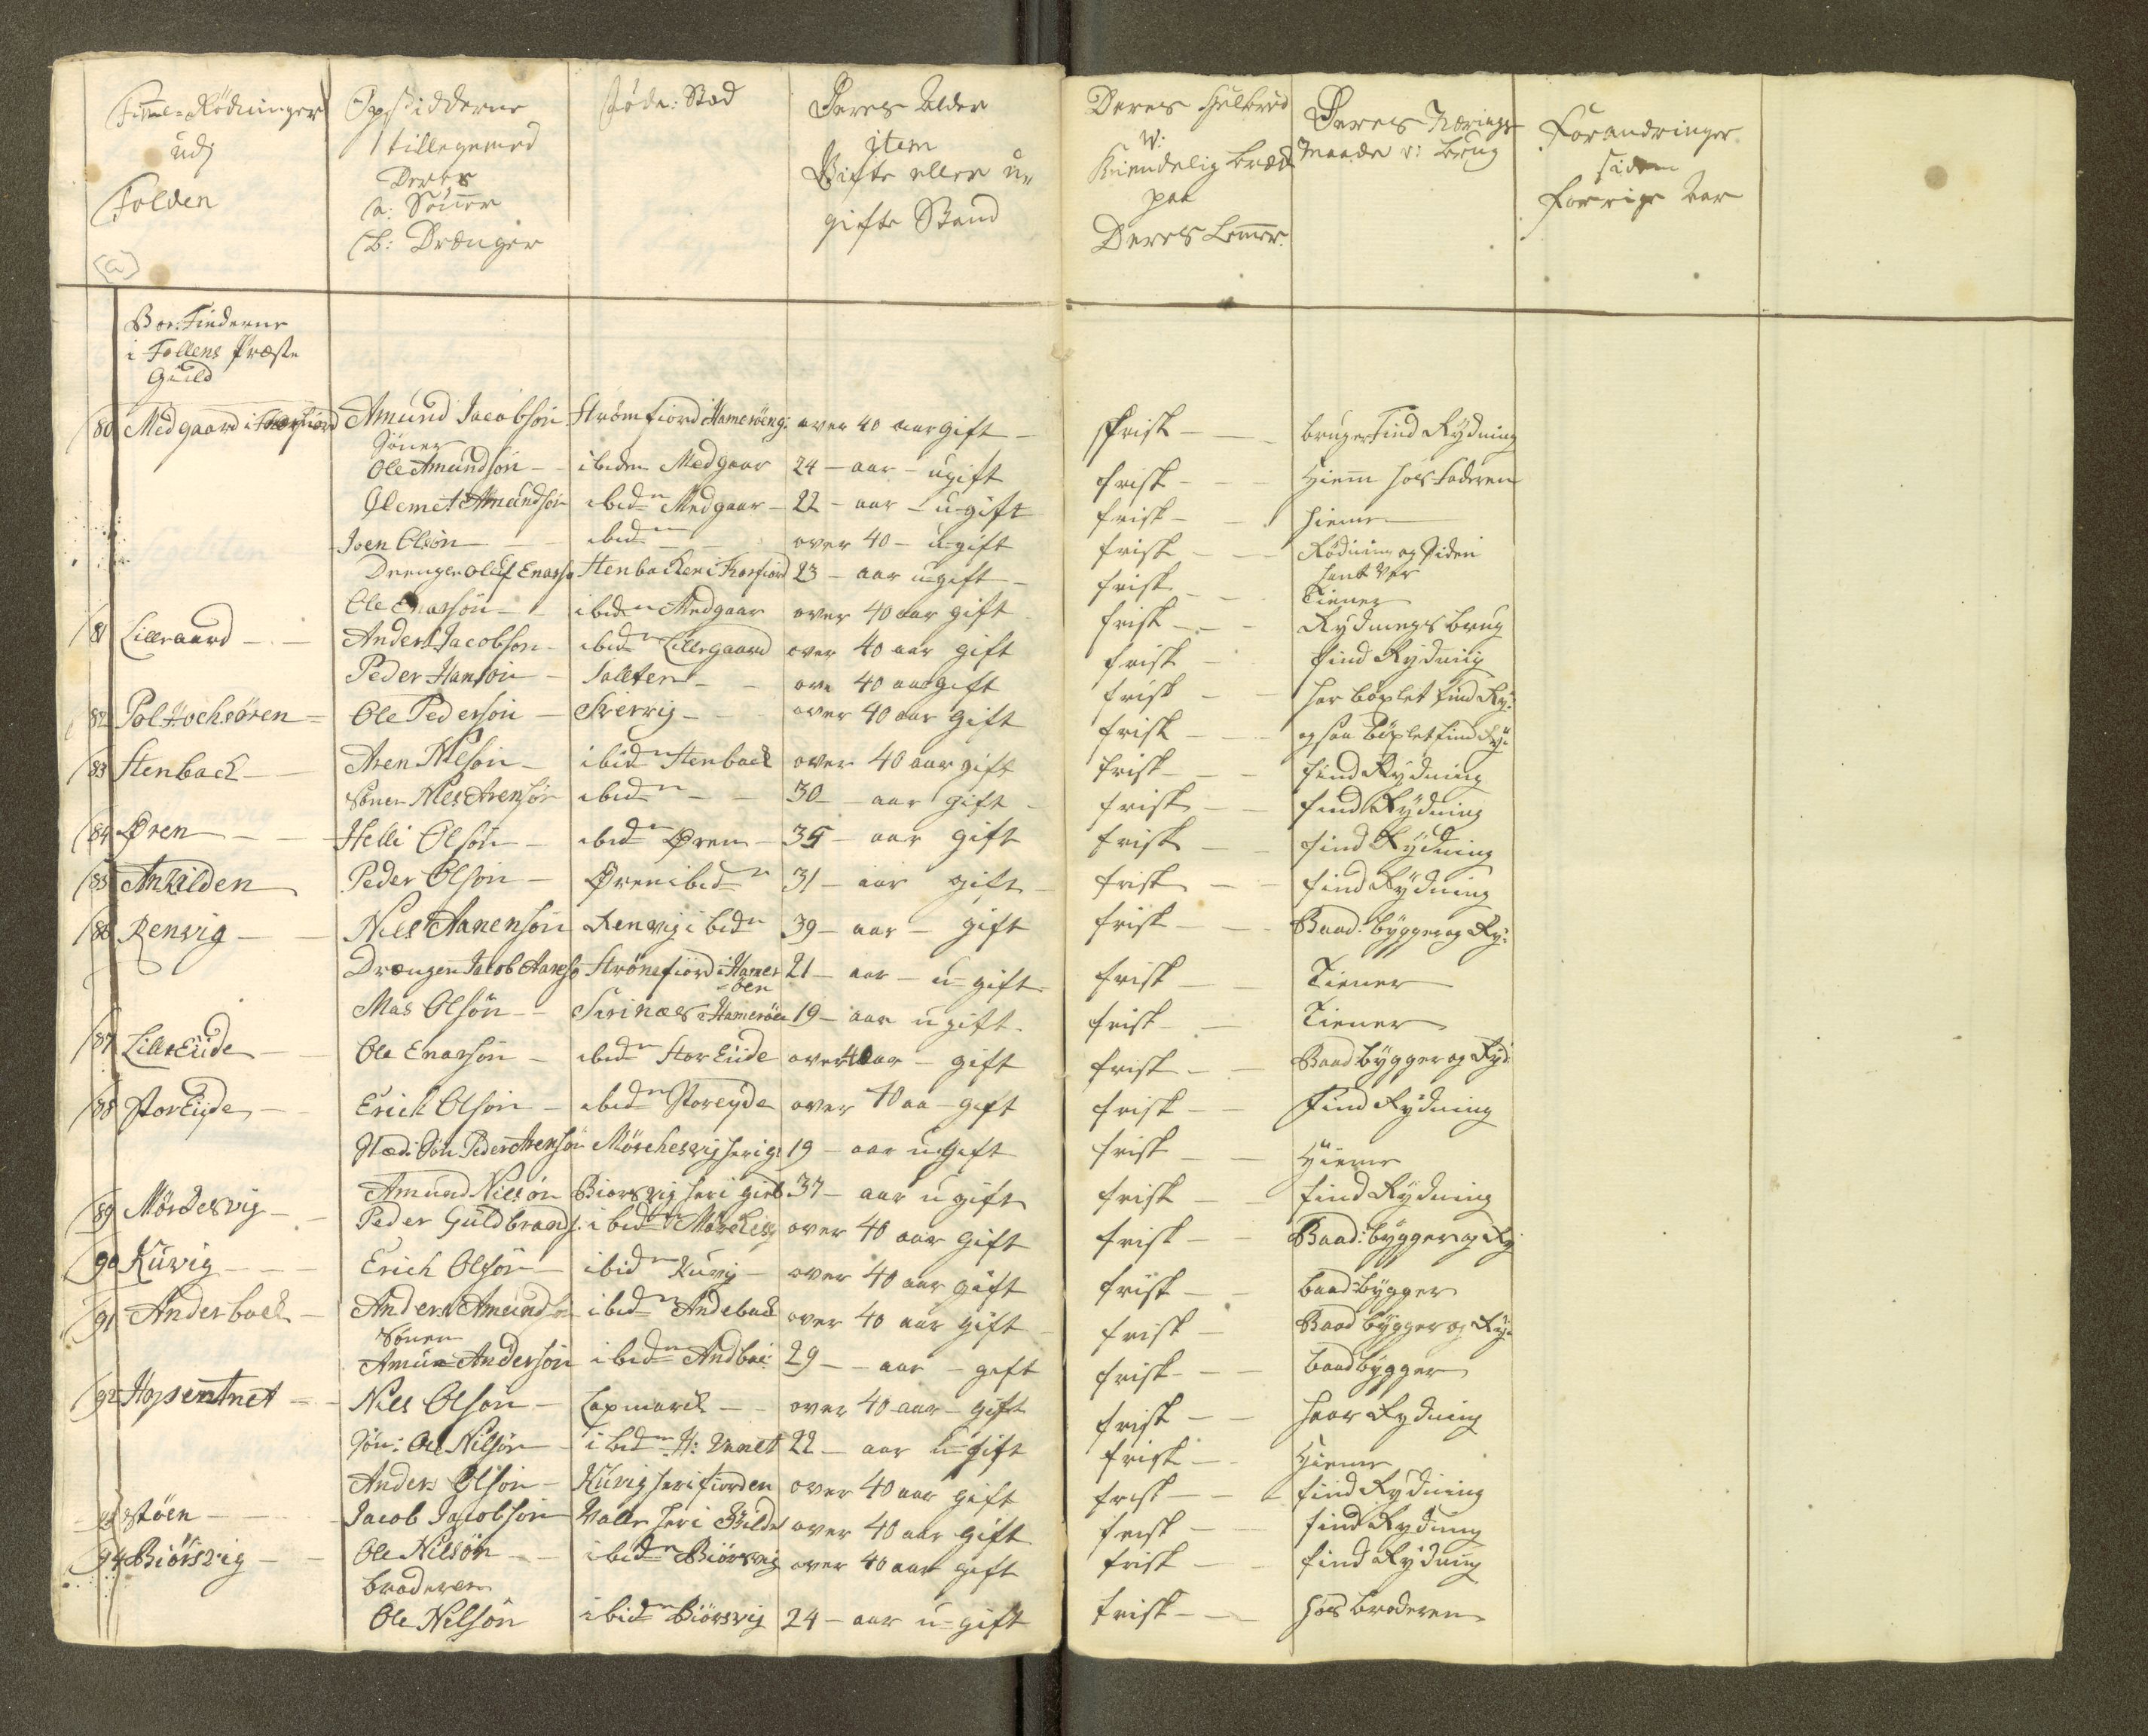 Finne-Rödninger
udj
Folden
Opsidderne
tillegemed
Deres
a: Sönner
b: Drænger
Föde: Stæd
Deres Alder
item
Gifte eller u-
gifte Stand
Deres Helbred
v:
Kiendelig bræk
paa
Deres Lemmer.
Deres Nærings
Maade v: brug
Forandringer
siden
forrige Aar
Boe: Finderne
i Follens Præste
Gield
80 Medgaard i Amund Jacobsön Strömfiord i Hameröe over 40 aar gift frisk bruger Find Rÿdning
Söner
Ole Amundsön ibidem Medgaar 24 aar ugift frisk hiem hos Faderen
Clemet Amundsön ibidm Medgaar 22 aar ugift frisk hieme
Joen Olsön ibidm over 40 ugift frisk Rödning og Siden
hent Ver
Drengen Oluf Enarsö Stenbacken i Korfiord 23 aar ugift frisk Tiener
Ole Enarsön ibidm Medgaar over 40 aar gift frisk Rÿdnings brug
81 Lillegaard Anders Jacobsön ibidm Lillegaard over 40 aar gift frisk find Rÿdning
Peder Hansön Salten over 40 aar gift frisk har böxlet find Rÿ:
82 Pol Hochsören Ole Pedersön Sverrig over 40 aar gift frisk ogsaa böxlet find Rÿ:
83 Stenback Aren Nilsön ibidm Stenback over 40 aar gift frisk find Rÿdning
Sönen Nils Arensön ibidm 30 aar gift frisk find Rÿdning
84 Øren Helli Olsön ibidm Øren 35 aar gift frisk find Rÿdning
85 Ankilden Peder Olsön Øren ibidm 31 aar gift frisk find Rÿdning
86 Renvig Niels Aanensön Renvig ibidm 39 aar gift frisk Baad: bygger og Rÿ:
Drængen Jacob Aanesö Strömfiord i Hamer
öen 21 aar u-gift frisk Tiener
Mas Olsön i Hameröen 19 aar ugift frisk Tiener
87 Lille Eide Ole Enarsön ibidm Stor Eide over 40 aar gift frisk Baad bygger og Rÿd:
88 Stor Eyde Erich Olsön ibidm Storeyde over 40 aa gift frisk Find Rÿdning
Sted: Sön Peder Arensön Mörchesvig her i g: 19 aar ugift frisk Hieme
Amund Nielsön Biörsvig her i gield 37 aar ugift frisk find Rÿdning
89 Mörckesvig Peder Guldbrands: ibidm over 40 aar gift frisk Baad: bygger og Rÿ
90 Kuvig Erich Olsön ibidm Kuvig over 40 aar gift frisk baad bygger
91 Anderback Anders Amundsön ibidm Andeback over 40 aar gift frisk Baad bygger og Rÿ:
Sönen
Amun Andersön ibidm Andbac 29 aar gift frisk baad bygger
92 Hopsvatnet Nils Olsön Lapmarck over 40 aar gift frisk haar Rydning
Sön: Ole Nilsön ibidm H: Vanet 22 aar ugift frisk Hieme
Anders Olsön Kuvig her i fiorden over 40 aar gift frisk find Rÿdning
93 Stöen Jacob Jacobsön Valle her i Gilde over 40 aar gift frisk find Rydning
94 Biörsvig Ole Nilsön ibidm Biörsvig over 40 aar gift frisk find Rÿdning
broderen
Ole Nilsön ibidm Biörsvig 24 aar u-gift frisk hos broderen